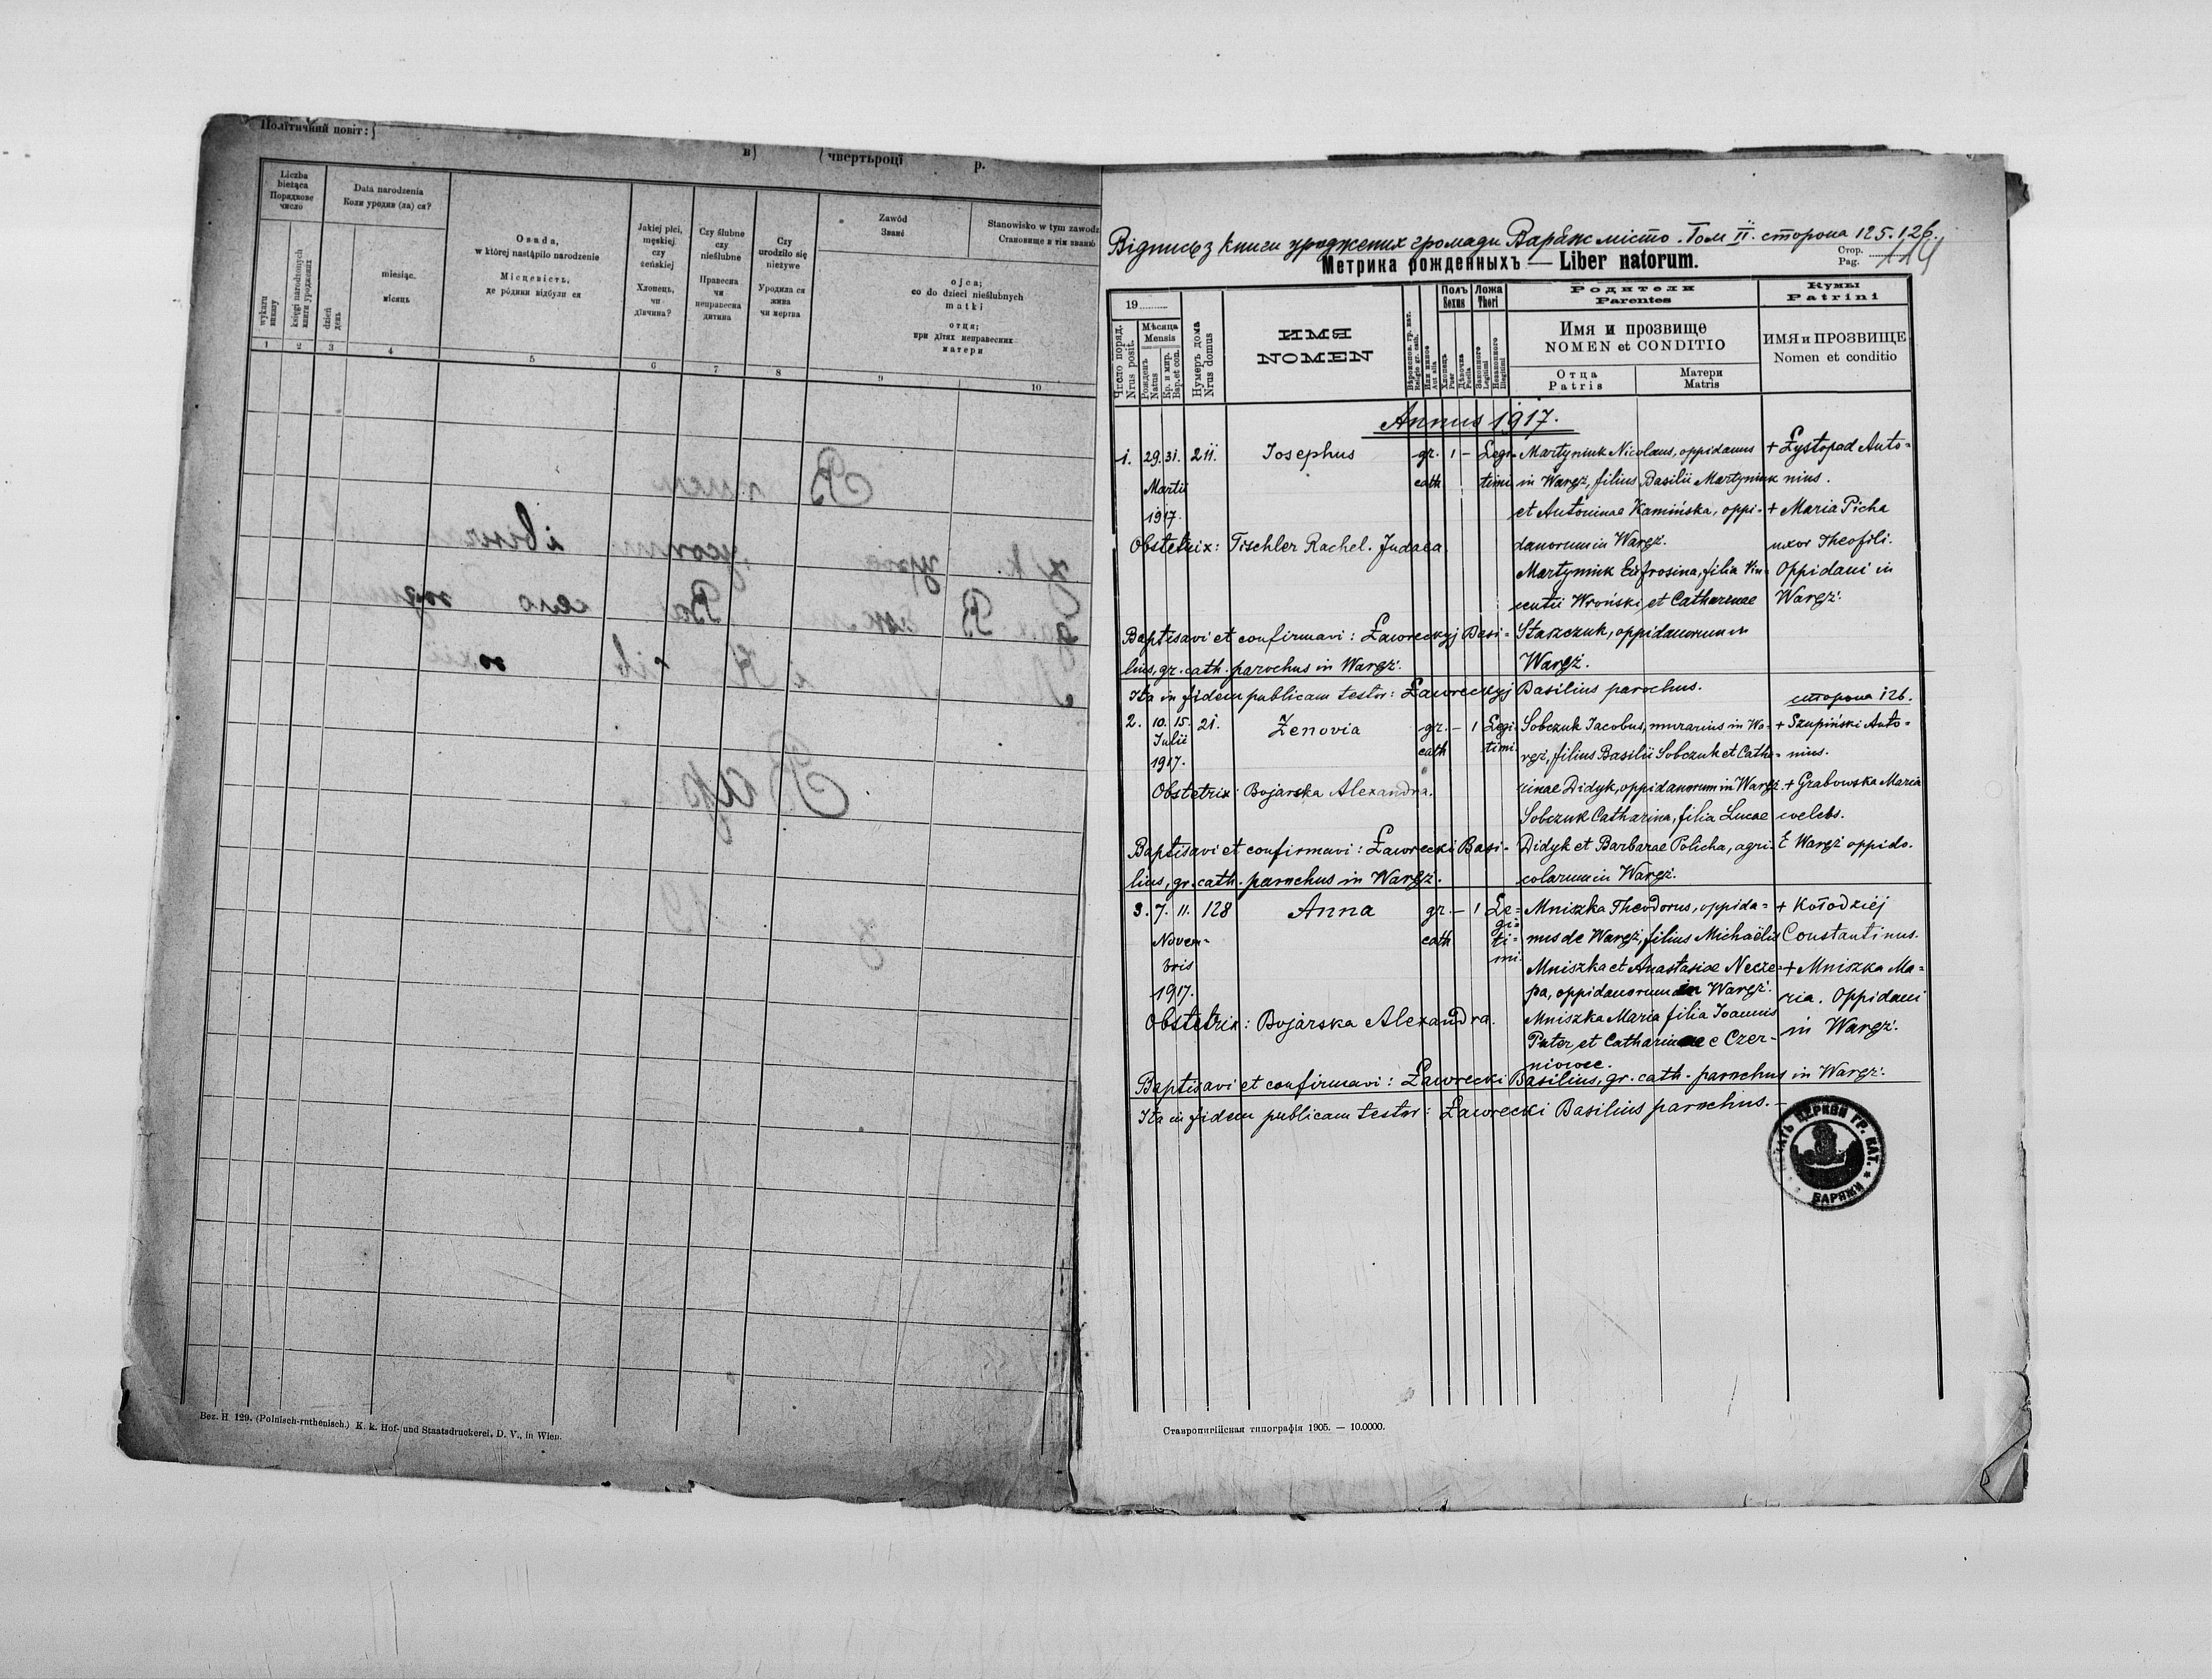 Політичний повіт:
в) чвертьроцї р.
Liczba bieżąca
Порядкове число
wykazu
виказу
księgi narodzonych
книги уроджених
Data narodzenia
Коли уродив (ла) ся?
dzień
день
miesiąc.
місяць
Osada,
w której nastąpiło narodzenie
Місцевість,
де родини відбули ся
Jakiej płci,
męskiej
czy
żeńskiej
Хлопець,
чи
дївчина?
Czy ślubne
czy
nieślubne
Правесна
чи
неправесна
дитина
Czy
urodziło się
nieżywe
Уродила ся
жива
чи мертва
Zawód
Званє
Stanowisko w tym zawodz
Становище в тім званю
ojca;
co do dzieci nieślubnych
matki
отця;
при дїтях неправесних
матери
1 2 3 4 5 6 7 8 9 10
Bez. H 129. (Polnisch-ruthenisch.) K. k. Hof- und Staatsdruckerei, D. V., in Wien.
Відпись з книги уроджених громади Варяж місто. Том II. сторона 125.126.
Метрика рожденныхъ — Liber natorum.
Стор.
Pag. 114
19
Число поряд.
Nrus posit.
Мѣсяца
Mensis
Рожденъ
Natus
Кр. и мир.
Bap. et con.
Нумеръ дома
Nrus domus
ИМЯ
NOMEN
Вѣроиспов. гр. кат.
Religio gr. cath.
Или инное
Aut alia
Полъ
Sexus
Хлопець
Puer
Дѣвочка
Puella
Ложа
Thori
Законного
Legitimi
Незаконного
Illegitimi
Родители
Parentes
Имя и прозвище
NOMEN et CONDITIO
Отца
Patris
Матери
Matris
Кумы
Patrini
ИМЯ и ПРОЗВИЩЕ
Nomen et conditio
Annus 1917.
1. 29. 31. 211. Josephus gr. 1 – Legi- Martyniuk Nicolaus, oppidanus + Łystopad Anto-
Martii cath timi in Waręż, filius Basilii Martyniuk nius.
1917. et Antoninae Kamińska, oppi- + Maria Picha
Obstetrix: Tischler Rachel. Judaea. danorum in Waręż. uxor Theofili.
Martyniuk Eufrosina, filia Vin- Oppidani in
centii Wroński et Catharinae Waręż.
Baptisavi et confirmavi: Ławreckyj Basi- Staszczuk, oppidanorum in
lius, gr. cath. parochus in Waręż. Waręż.
Ita in fidem publicam testor: Ławreckyj Basilius parochus. сторона 126.
2. 10. 15. 21. Zenovia gr. – 1 Legi- Sobczuk Jacobus, murarius in Wa- + Szupiński Anto-
Julii cath timi. ręż, filius Basilii Sobczuk et Catha- nius.
1917.
Obstetrix: Bojarska Alexandra. rinae Didyk, oppidanorum in Waręż. + Grabowska Maria
Sobczuk Catharina, filia Lucae coelebs.
Baptisavi et confirmavi: Ławrecki Basi- Didyk et Barbarae Policha, agri- E Waręż oppido.
lius, gr. cath. parochus in Waręż. colarum in Waręż.
3. 7. 11. 128 Anna gr. – 1 Le- Mniszka Theodorus, oppida- + Kołodziej
Novem- cath gi-ti- nus de Waręż, filius Michaëlis Constantinus.
bris mi. Mniszka et Anastasiae Necze- + Mniszka Ma-
1917. pa, oppidanorum in Waręż. ria. Oppidani
Obstetrix: Bojarska Alexandra. Mniszka Maria filia Joannis in Waręż.
Pater, et Catharinae e Czer-
niowce.
Baptisavi et confirmavi: Ławrecki Basilius, gr. cath. parochus in Waręż.
Ita in fidem publicam testor: Ławrecki Basilius parochus. –
ПЕЧАТЬ ЦЕРКВИ ГР. КАТ. * ВАРЯЖИ
Ставропигійская типографія 1905. — 10.0000.